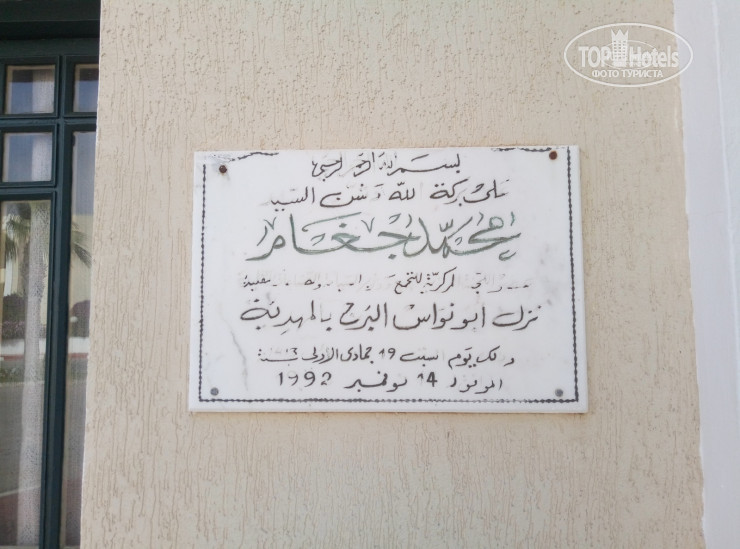 TOP Hotels
ФОТО ТУРИСТА
بسم الله الرحمن الرحيم
على بركة الله دشن السيد
محمد جغام
المركزية للتجمع
نزل ابو نواس البرج بالمهدية
وذلك يوم السبت 19 جمادى الاولى
الموافق 14 نوفمبر 1992